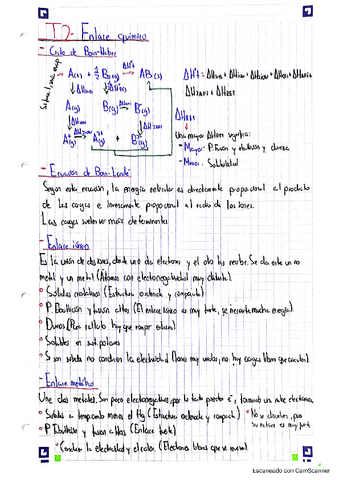 T2- Enlace químico
- Ciclo de Born-Haber
A(s) + ½ B₂(g) → AB(s)
A(g) B(g) B⁻(g)
A⁺ + B⁻(g)
Una mayor ΔHret significa:
- Mayor P. Fusión y ebullición y dureza
- Menor Solubilidad
- Ecuación de Born-Landé
Según esta ecuación, la energía reticular es directamente proporcional al producto
de las cargas e inversamente proporcional al radio de los iones.
Las cargas suelen ser más determinantes
- Enlace iónico
Es la unión de dos iones, donde uno da electrones y el otro los recibe. Se da entre un no
metal y un metal (Átomos con electronegatividad muy distinta)
Sólidos (Estructura ordenada y compacta)
P. Ebullición y fusión altos (El enlace iónico es muy fuerte, se necesita mucha energía)
Duros (Para rallarlo hay que romper enlaces)
Solubles en polares
S son sólidos no conducen la electricidad (Iones muy unidos, no hay cargas libres)
- Enlace metálico
Une dos metales. Son poco electronegativos, por lo tanto e⁻, formando un mar electrones
Sólidos a temperatura menos el Hg (Estructura ordenada y compacta)
No se disuelven, pues
su enlace es muy fuerte
P. Ebullición y fusión altos (Enlace fuerte)
Conducen la electricidad y el calor (Electrones libres que se mueven)
Escaneado con CamScanner